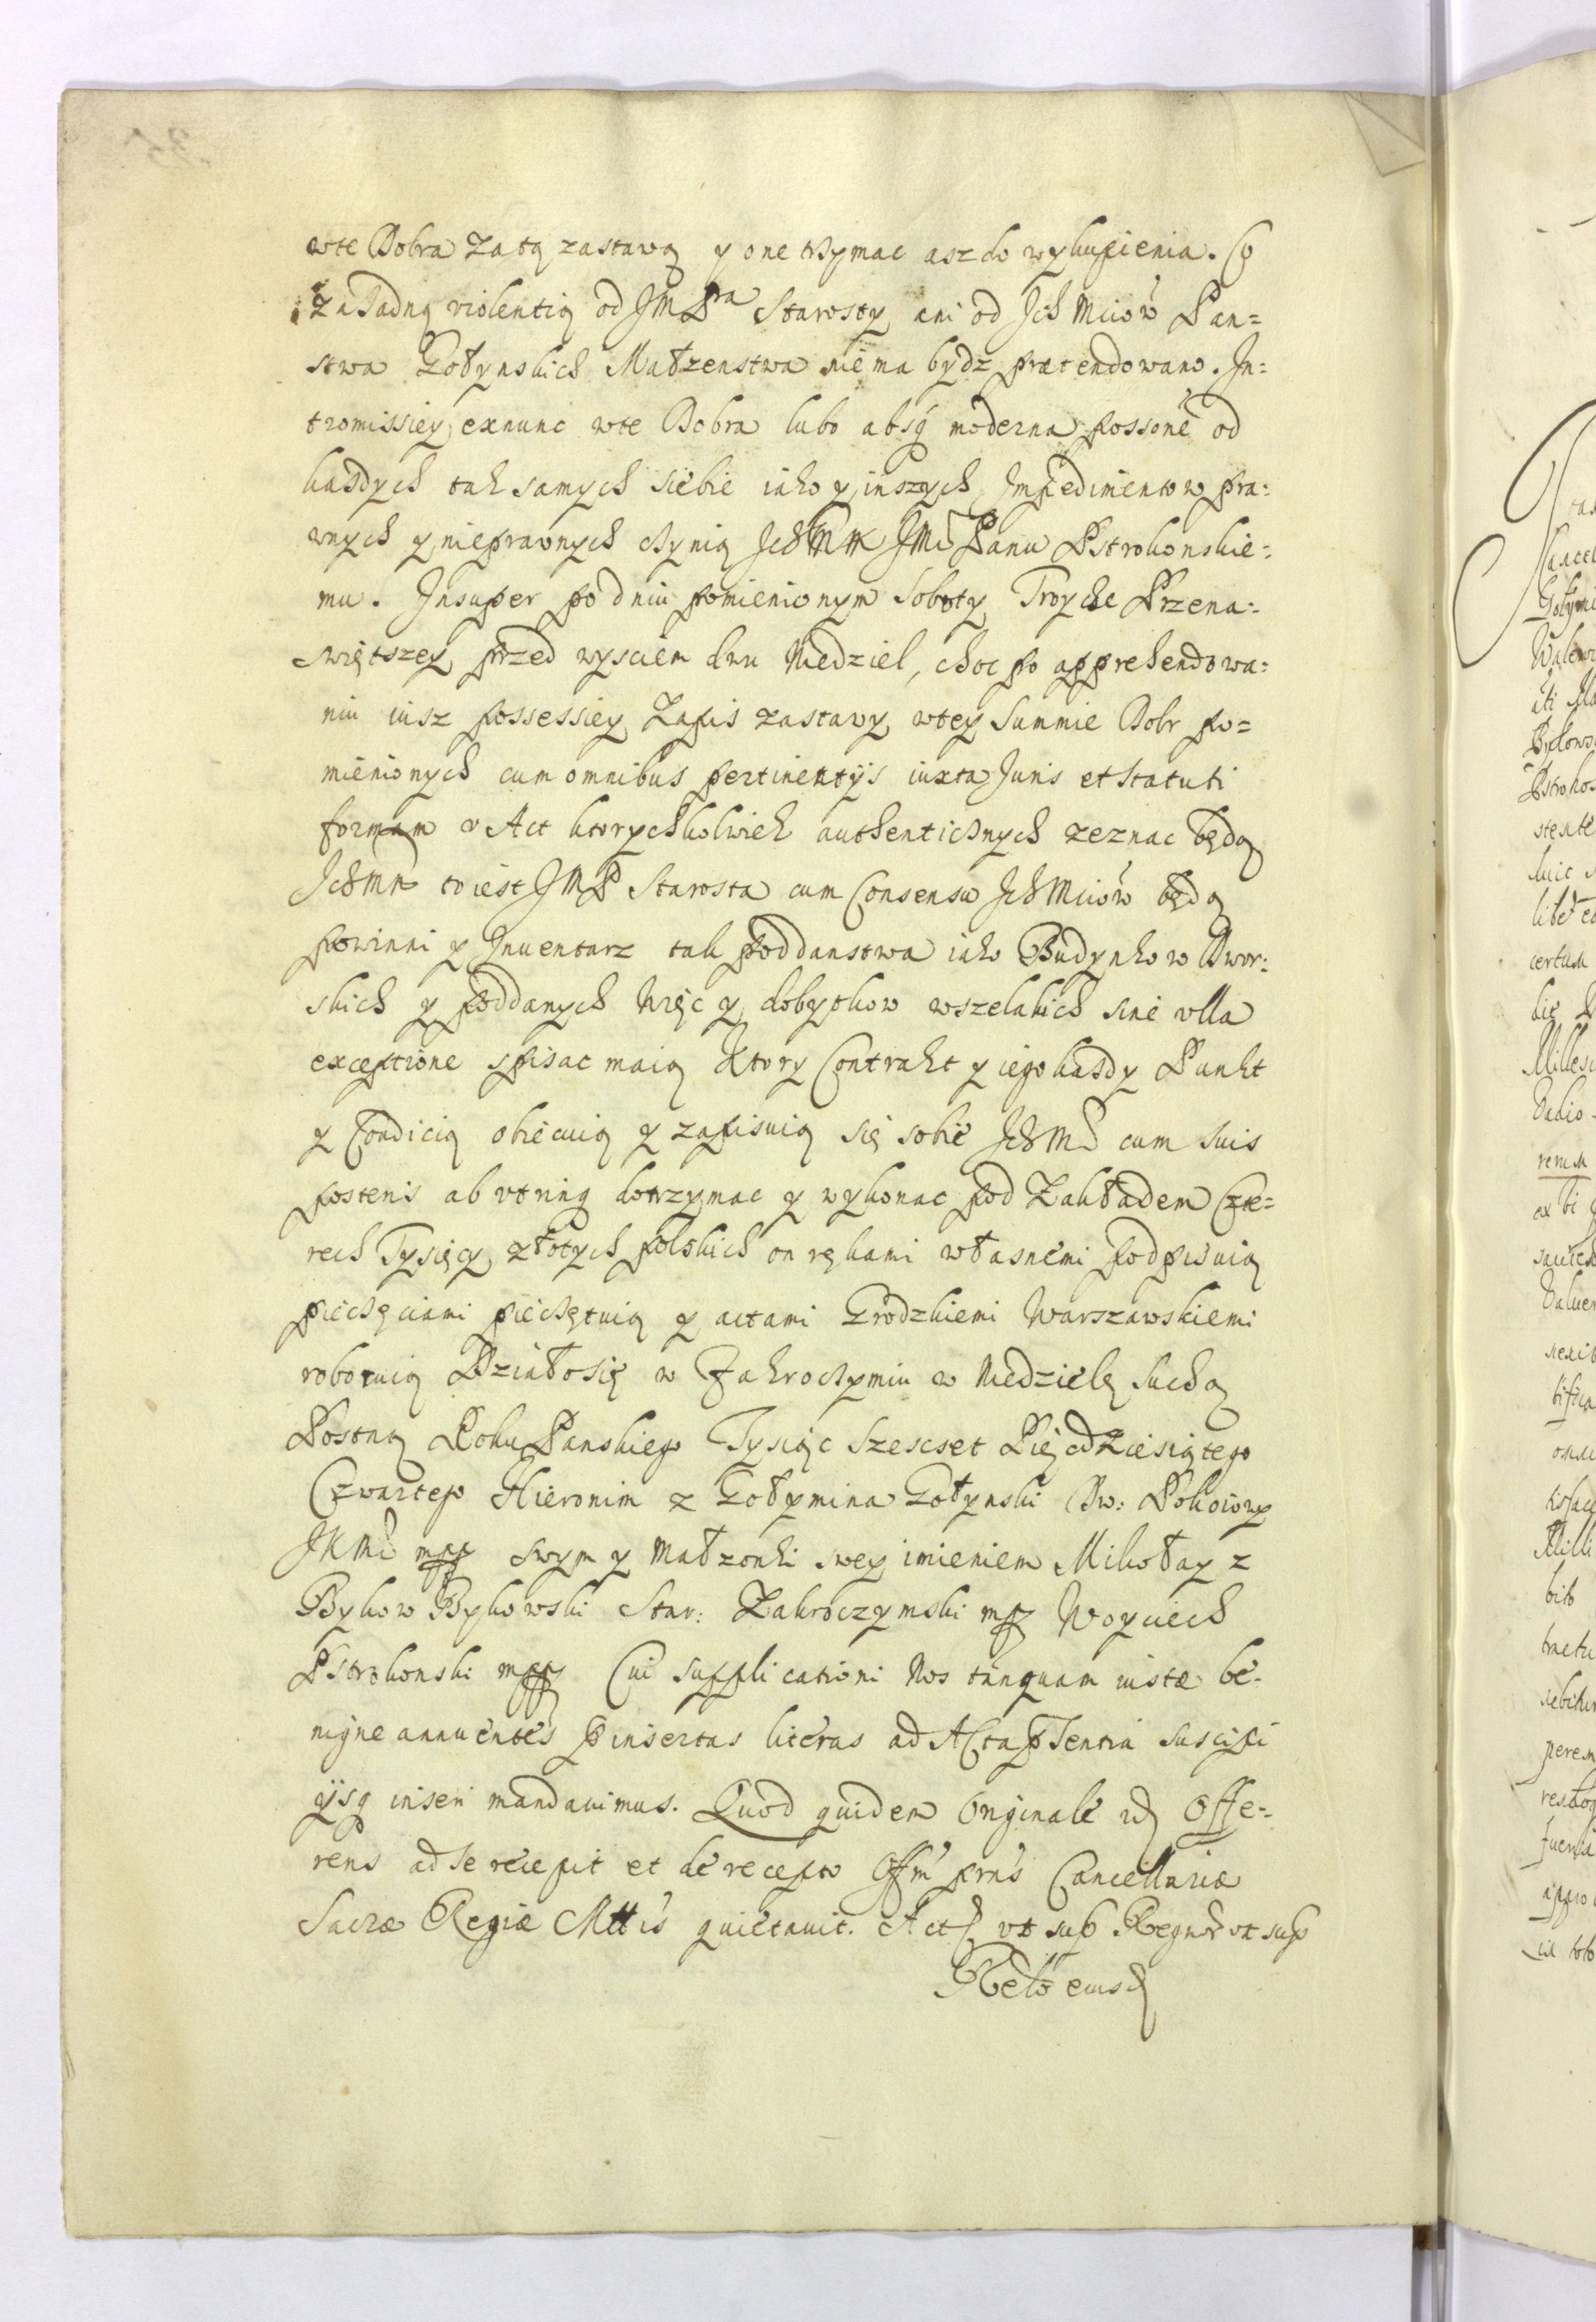 wte Dobra za tą zastawą y one trzymac asz do wykupienia. Co
za żadną violentią od JMPna Starosty ani od Ich Mciow Pan=
stwa Gołynskich Małzenstwa nie ma bydz prætendowano. In=
tromissiey exnunc wte Dobra lubo absq moderna possone od
każdych tak samych siebie iako y inszych Impedimentow pra=
wnych y nieprawnych czynią Ich Mć JMci Panu Pstrokonskie=
mu. Insuper po dniu pomienionym Soboty Troyce Przena=
swiętszey przed wysciem dwu Niedziel, choc po apprehendowa=
niu iusz possessiey Zapis zastawy wtey Summie Dobr po=
mienionych cum omnibus pertinentijs iuxta Juris et Statuti
formam v Act ktorychkolwiek authenticznych zeznac będą
Ich Mć to iest JMP Starosta cum Consensu Ich Mciow będą
powinni y Inuentarz tak poddanstwa iako Budynkow Dwor=
skich y poddanych Więc y dobytkow wszelakich sine vlla
exceptione spisac maią Ktory Contrakt y iego każdy Punkt
y Condicią obiecuią y zapisuią się sobie Ich Mć cum suis
posteris ab vtrinq dotrzymac y wykonac pod Zakładem Czte=
rech Tysięcy złotych polskich on rękami własnemi podpisuią
pieczęciami pieczętuią y actami Grodzkiemi Warszawskiemi
roboruią Działo się w Zakroczymiu w Niedzielę Suchą
Postną Roku Panskiego Tysiąc Szescset Pięcdziesiątego
Czwartego Hieronim z Gołymina Gołynski Dw: Pokoiowy
JKMci mpp swym y Małzonki swey imieniem Mikołay z
Bykow Bykowski Star: Zakroczymski mp Woyciech
Pstrokonski mpp Cui supplicationi Nos tanquam iustæ be=
nigne annuentes pinsertas literas ad Acta pnsentia suscipi
ijsq inseri mandauimus. Quod quidem Originale id Offe=
rens ad se recepit et de recepto Offm prns Cancellariæ
Sacræ Regiæ Mttis quietauit. Act vt sup Regnor vt sup
Relo eiusd